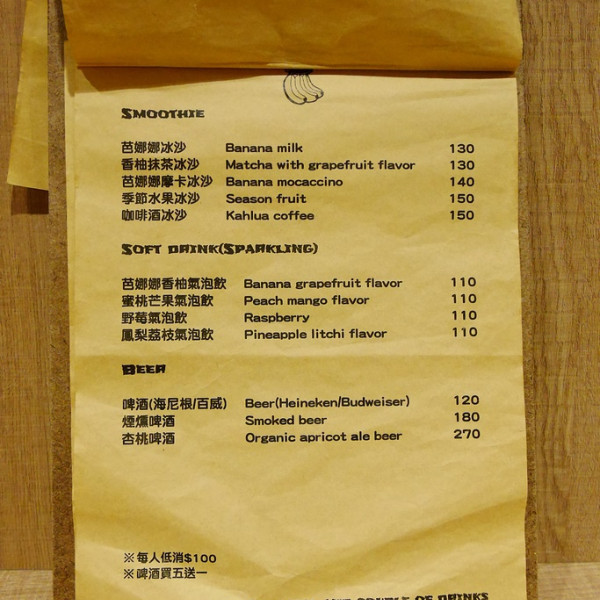 SMOOTHIE
芭娜娜冰沙 Banana milk 130
香柚抹茶冰沙 Matcha with grapefruit flavor 130
芭娜娜摩卡冰沙 Banana mocaccino 140
季節水果冰沙 Season fruit 150
咖啡酒冰沙 Kahlua coffee 150
SOFT DRINK(SPARKLING)
芭娜娜香柚氣泡飲 Banana grapefruit flavor 110
蜜桃芒果氣泡飲 Peach mango flavor 110
野莓氣泡飲 Raspberry 110
鳳梨荔枝氣泡飲 Pineapple litchi flavor 110
BEER
啤酒(海尼根/百威) Beer(Heineken/Budweiser) 120
煙燻啤酒 Smoked beer 180
杏桃啤酒 Organic apricot ale beer 270
※每人低消$100
※啤酒買五送一
OF DRINKS